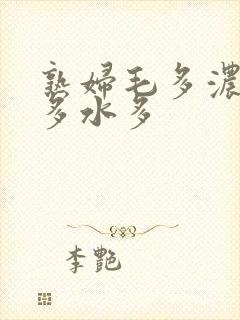 熟婦毛多濃
多水多
李艷